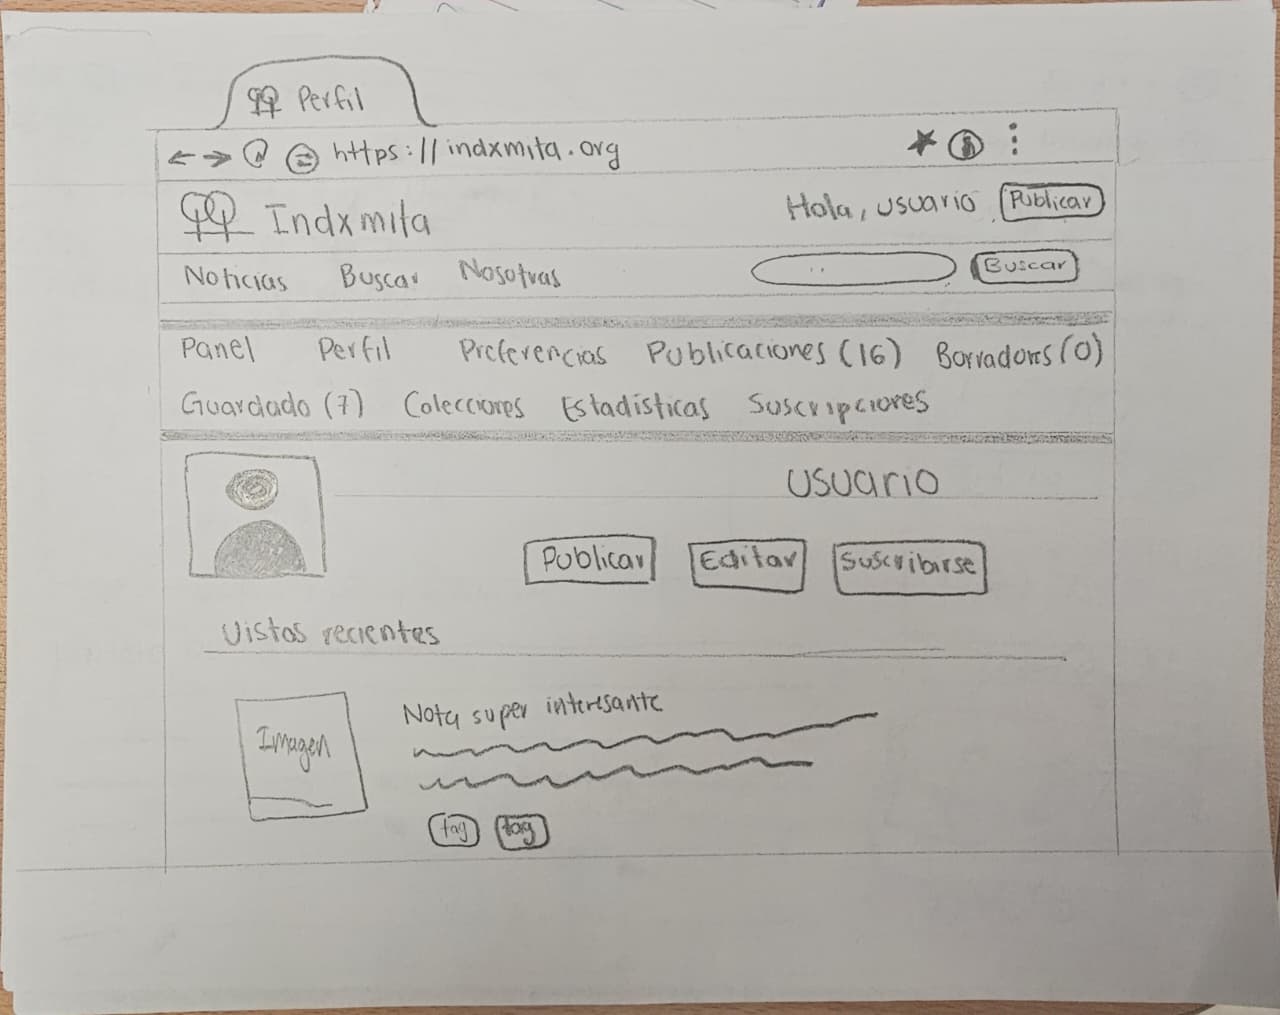 Perfil
https://indxmita.org
Indxmita Hola, usuario Publicar
Noticias Buscar Nosotras Buscar
Panel Perfil Preferencias Publicaciones (16) Borradores (0)
Guardado (7) Colecciones Estadísticas Suscripciones
usuario
Publicar Editar Suscribirse
Vistos recientes
Imagen
Nota super interesante
tag tag